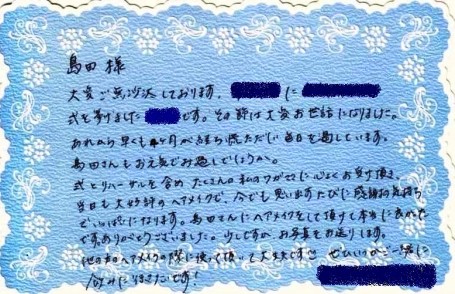 島田 様
大変ご無沙汰しております。 に
式を挙げました です。その節は大変お世話になりました。
あれから早くも ヶ月が経ち慌ただしい毎日を過しています。
島田さんもお元気でお過しでしょうか。
式とリハーサルを含め たくさんの私のワガママに心よくお受け頂き、
当日も大好評のヘアメイクで、今でも思い出すたびに感謝の気持ち
でいっぱいになります。島田さんにヘアメイクをして頂けて本当に良かった
ですありがとうございました。少しですが、お写真をお送りします。
他の方のヘアメイクの際に使って頂いて大丈夫です。ぜひいつかご一緒に
飲みに行きたいです!